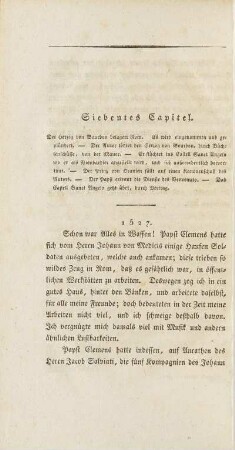 Siebentes Capitel.
Der Herzog von Bourbon belagert Rom. Es wird eingenommen und ge-
plündert. — Der Autor tödtet den Herzog von Bourbon, durch Büch-
senschüsse, von der Mauer. — Er flüchtet ins Castell Sanct Angelo
wo er als Bombardier angestellt wird, und sich außerordentlich hervor-
thut. — Der Prinz von Oranien fällt auf einen Kanonenschuß des
Autors. — Der Papst erkennt die Dienste des Benvenuto. — Das
Castell Sanct Angelo geht über, durch Vertrag.
1527.
Schon war Alles in Waffen! Papst Clemens hatte
sich vom Herrn Johann von Medicis einige Haufen Sol-
daten ausgebeten, welche auch ankamen; diese trieben so
wildes Zeug in Rom, daß es gefährlich war, in öffent-
lichen Werkstätten zu arbeiten. Deswegen zog ich in ein
gutes Haus, hinter den Bänken, und arbeitete daselbst,
für alle meine Freunde; doch bedeuteten in der Zeit meine
Arbeiten nicht viel, und ich schweige deshalb davon.
Ich vergnügte mich damals viel mit Musik und andern
ähnlichen Lustbarkeiten.
Papst Clemens hatte indessen, auf Anrathen des
Herrn Jacob Salviati, die fünf Kompagnien des Johann